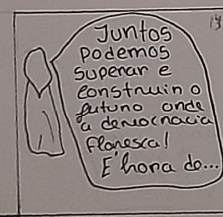 Juntos
podemos
superar e
construir o
futuro onde
a democracia
floresca!
E' hora do...